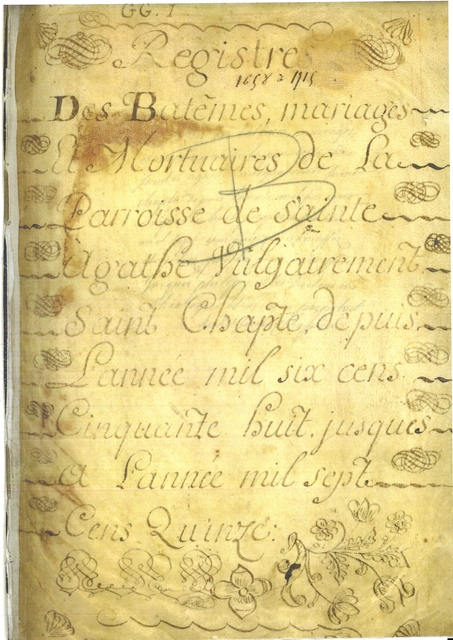 GG. 1
Registres
1658 à 1715
Des Batêmes, mariages
Et Mortuaires de La
Parroisse de Sainte
Agathe Vulgairement
Saint Chapte, depuis
L'année mil six cens
Cinquante huit, jusques
A L'année mil sept
Cens Quinze:
B